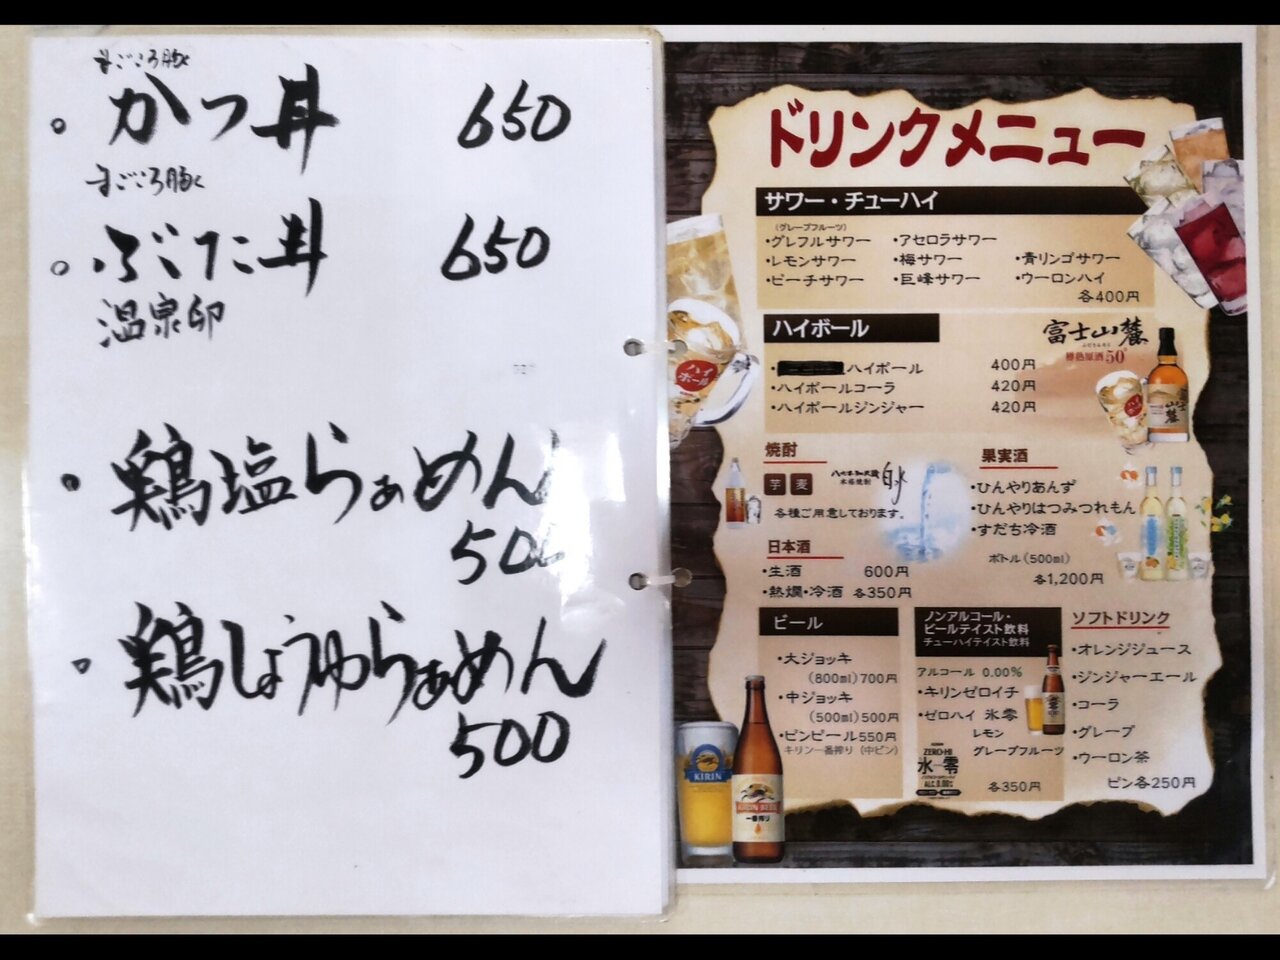 まごころ豚
・かつ丼 650
まごころ豚
・ぶた丼 650
温泉卵
・鶏塩らぁめん
500
・鶏しょうゆらぁめん
500
ドリンクメニュー
サワー・チューハイ
(グレープフルーツ)
・グレフルサワー ・アセロラサワー
・レモンサワー ・梅サワー ・青リンゴサワー
・ピーチサワー ・巨峰サワー ・ウーロンハイ
各400円
ハイボール
富士山麓
樽熟原酒50°
・ハイボール 400円
・ハイボールコーラ 420円
・ハイボールジンジャー 420円
ハイボール
焼酎
芋 麦
本格焼酎 白水
各種ご用意しております。
果実酒
・ひんやりあんず
・ひんやりはつみつれもん
・すだち冷酒
ボトル(500ml)
各1,200円
日本酒
・生酒 600円
・熱燗・冷酒 各350円
ビール
・大ジョッキ
(800ml)700円
・中ジョッキ
(500ml)500円
・ビンビール550円
キリン一番搾り(中ビン)
ノンアルコール・
ビールテイスト飲料
チューハイテイスト飲料
アルコール 0.00%
・キリンゼロイチ
・ゼロハイ 氷零
レモン
グレープフルーツ
ZERO-HI
氷零
ALC.0.00%
各350円
ソフトドリンク
・オレンジジュース
・ジンジャーエール
・コーラ
・グレープ
・ウーロン茶
ビン各250円
KIRIN
KIRIN BEER
一番搾り